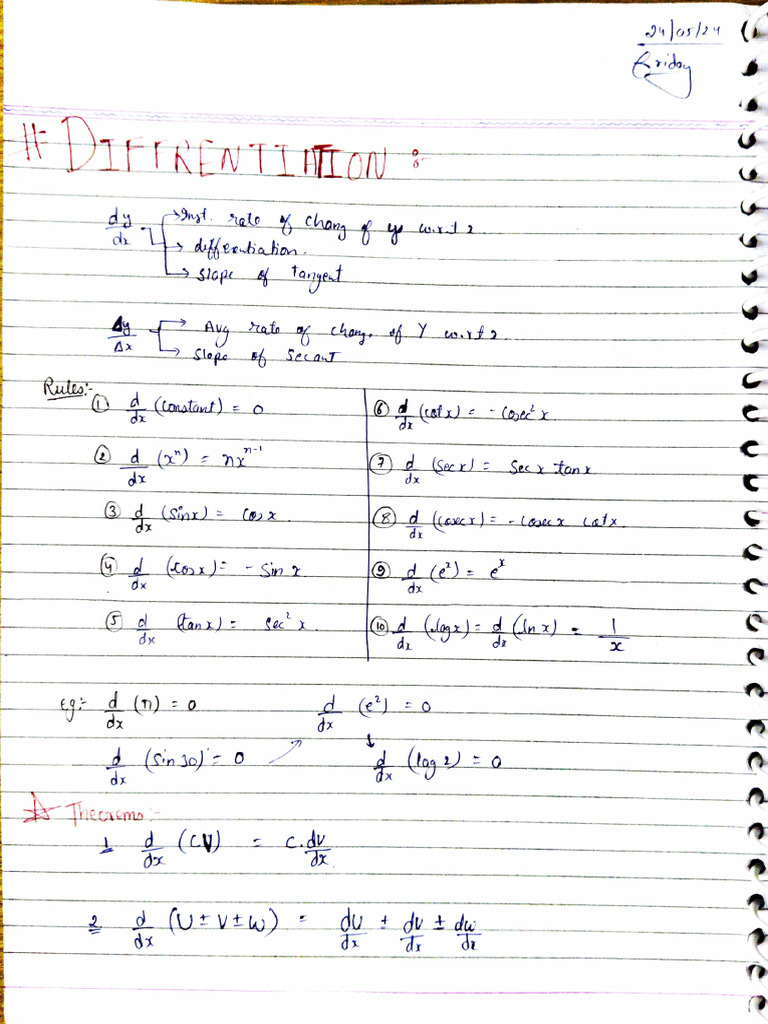 24/05/24
Friday
# DIFFRENTIATION :-
dy/dx → Inst. rate of chang of y w.r.t x.
→ differentiation.
→ Slope of tangent
Δy/Δx → Avg rate of change. of Y w.r.t x.
→ Slope of Secant
Rules:-
① d/dx (constant) = 0
② d/dx (xⁿ) = nxⁿ⁻¹
③ d/dx (sinx) = cosx.
④ d/dx (cosx) = - Sin x
⑤ d/dx (tanx) = sec² x.
⑥ d/dx (cotx) = - cosec² x
⑦ d/dx (secx) = Sec x tanx
⑧ d/dx (cosecx) = - cosecx cotx.
⑨ d/dx (eˣ) = eˣ
⑩ d/dx (logx) = d/dx (lnx) = 1/x
Eg:- d/dx (π) = 0
d/dx (sin 30) = 0
d/dx (e²) = 0
↓
d/dx (log 2) = 0
☆ Theorems:-
1 d/dx (CV) = C.dv/dx.
2 d/dx (U ± V ± W) = dU/dx ± dV/dx ± dw/dx